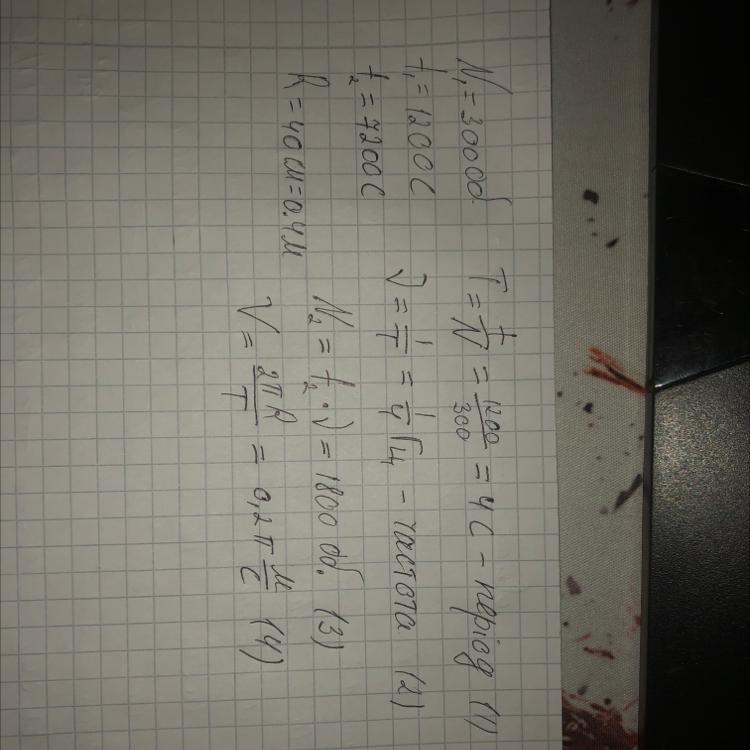 N₁ = 300 об.
t₁ = 1200 с
t₂ = 7200 с
R = 40 см = 0.4 м
T = t/N = 1200/300 = 4 с - період (1)
ν = 1/T = 1/4 Гц - частота (2)
N₂ = t₂ · ν = 1800 об. (3)
V = 2πR/T = 0,2π м/с (4)